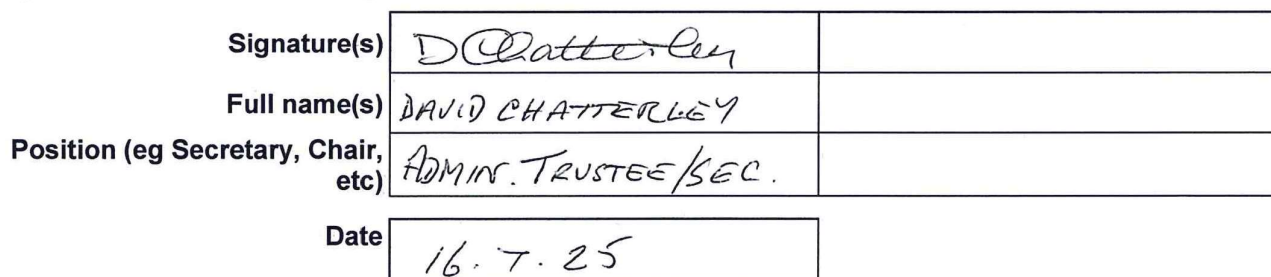 Signature(s) D Chatterley
Full name(s) DAVID CHATTERLEY
Position (eg Secretary, Chair, etc) ADMIN. TRUSTEE/SEC.
Date 16.7.25